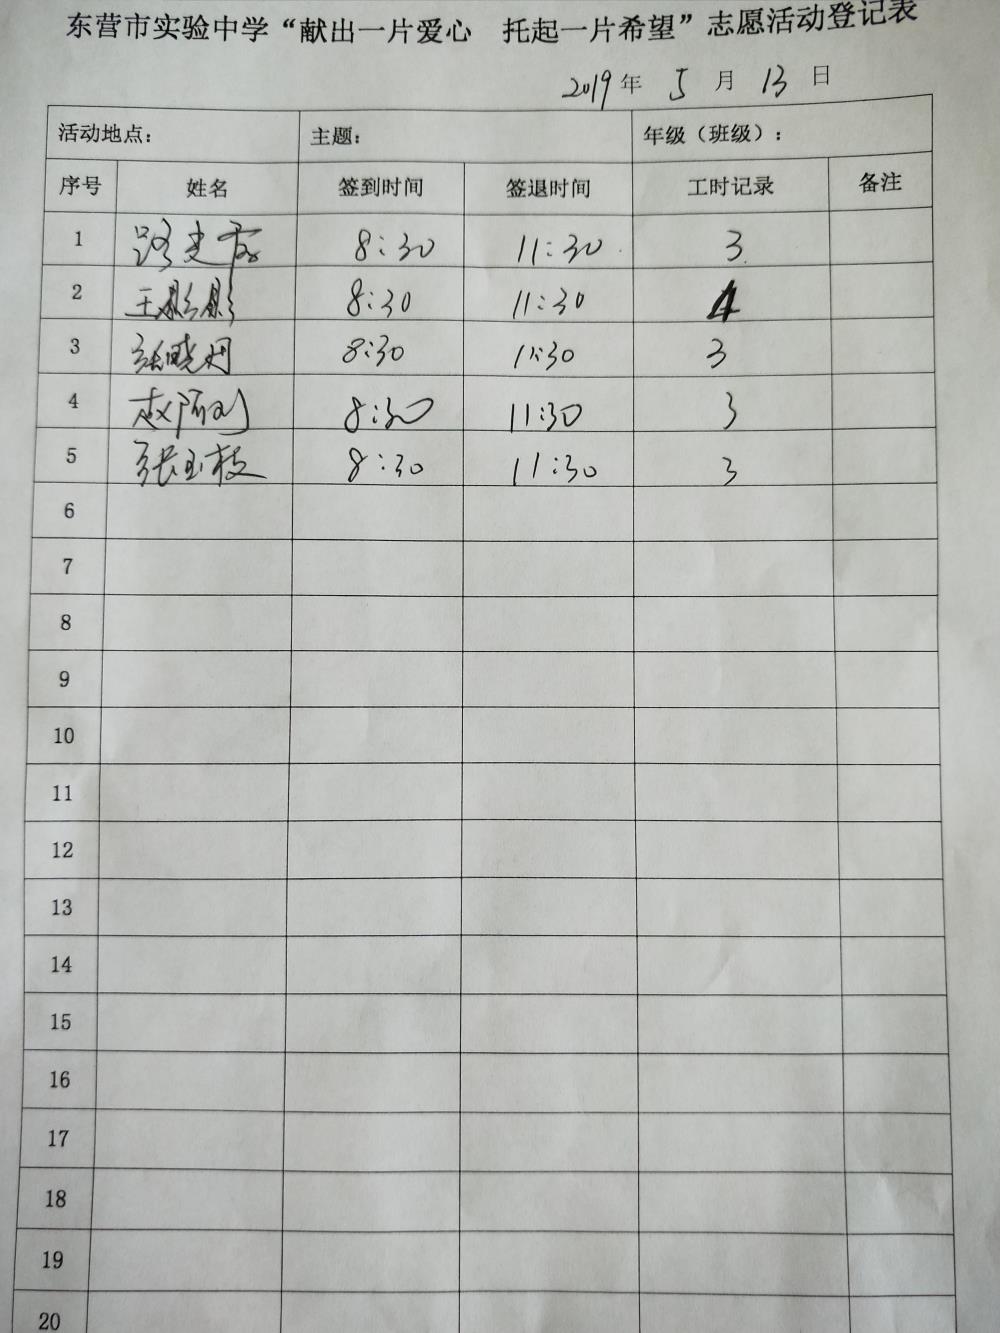 东营市实验中学“献出一片爱心 托起一片希望”志愿活动登记表
2019年 5月 13日
活动地点: 主题: 年级（班级）:
序号 姓名 签到时间 签退时间 工时记录 备注
1 8:30 11:30 3
2 王彬彬 8:30 11:30
3 张晓丹 8:30 11:30 3
4 8:30 11:30 3
5 张玉枝 8:30 11:30 3
6
7
8
9
10
11
12
13
14
15
16
17
18
19
20